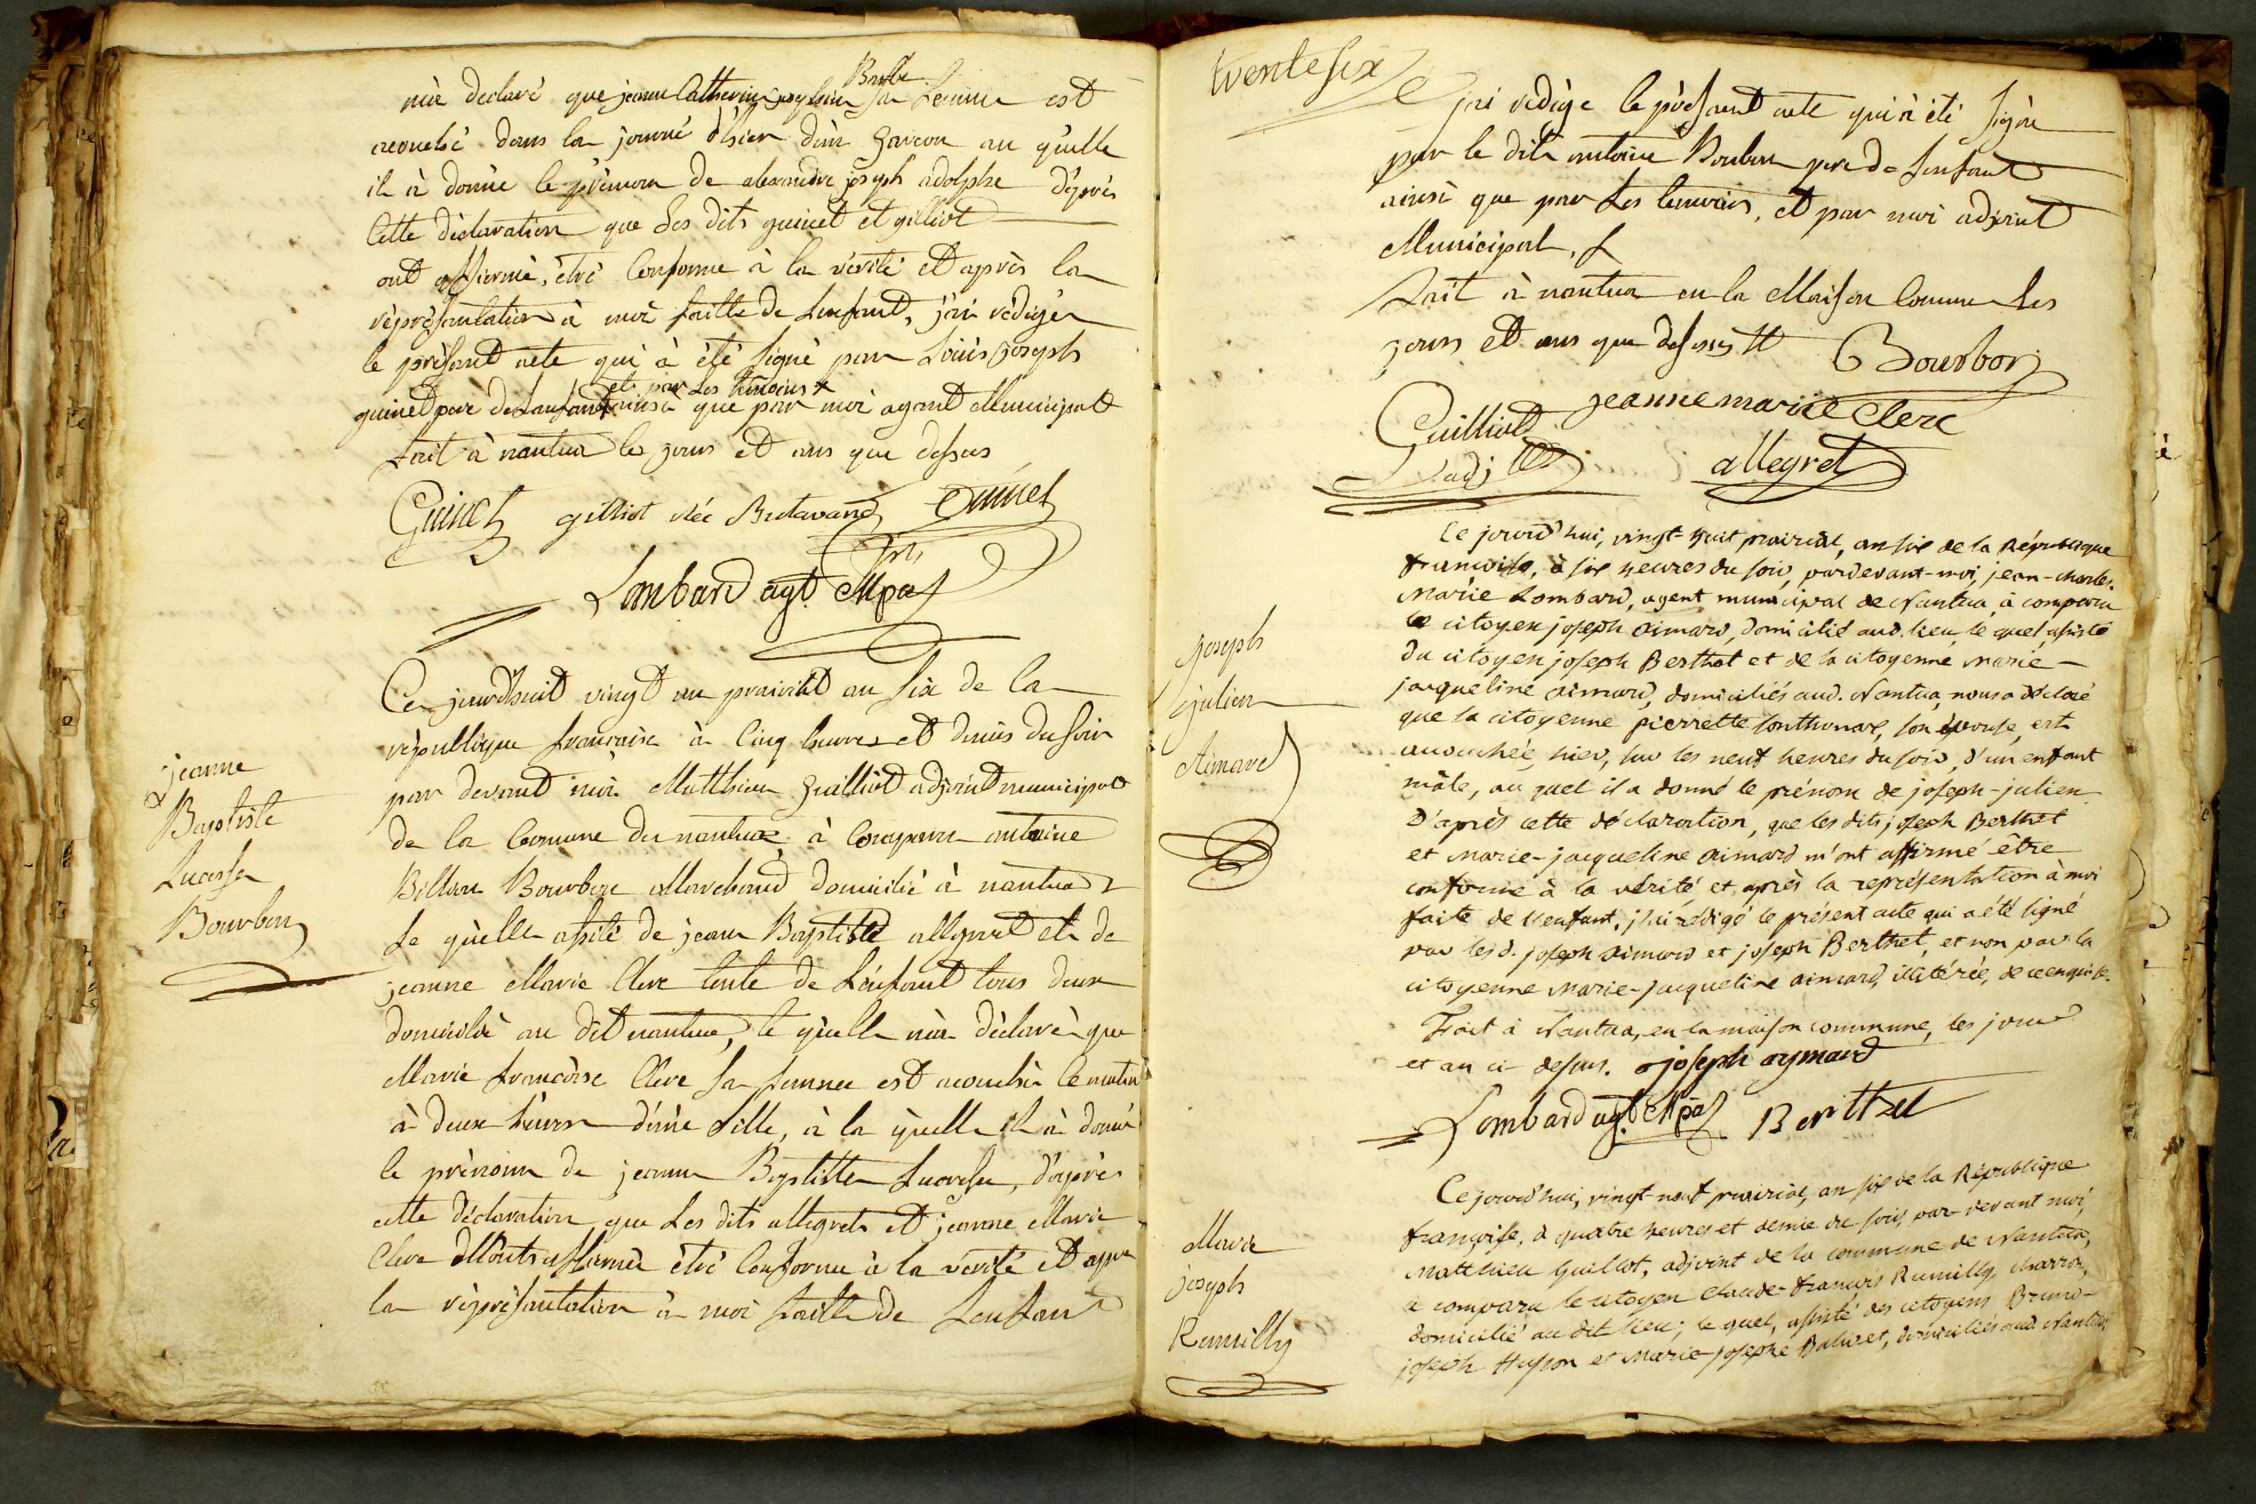 mà declaré que jeanne Catherine Barbe sa femme est
acouché dans la journé d'hier d'un garcon au quelle
il à donné le prènom de alexandre joseph adolphe d'aprés
Cette déclaration que Les dits guinet et gilliot
ont affirmé, étré Conforme à la vérité et après la
réprésantation à moi faitte de Lenfant, j'ai rédiger
le présant acte qui à été signé par Loüis joseph
et par Les témoins
guinet pere de Lanfant ainsi que par moi agant Municipal
fait à nantua les jours et ans que dessus
Guinet gilliot née Butavand Guinet
Lombard agt. Mpal
jeanne
Baptiste
Lucresse
Bourbon
Ce jourdhuit vingt un prairial an six de la
république francaise à Cinq heures et demis du soir
par devant moi Matthieu guilliot adjoint municipal
de la Comune de nantua, à Comparu antoine
Bourbon Marchand domicilié à nantua
Le quelle assité de jean Baptiste allegret et de
jeanne Marie Clerc tente de Lénfant tous deux
domicilié au dit nantua, le quelle mà déclaré que
Marie francoise Clerc sa femme est acouché Ce matin
à deux heures d'une fille, à la quelle il à donné
le prénom de jeanne Baptiste Lucresse, d'aprés
cette déclaration que Les dits allegret et jeanne Marie
Clerc Mont affirmé étré Conforme à la verité et apre
la réprésantation à moi faitte de Lenfant
trente six
jai rédige le présant acte qui à été signé
par le dit antoine Bourbon pere de Lenfant
ainsi que par Les temoins, et par moi adjoint
Municipal.
fait à nantua en la Maison Comune Les
jours et ans que dessus Bourbon
jeanne marie Clerc
Guilliot
adj allegret
Joseph
julien
Aimard
Ce jourd'hui, vingt-huit prairial, an six de la République
francoise, à six heures du soir, pardevant-moi, jean-charles-
Marie Lombard, agent municipal de Nantua, à comparu
le citoyen joseph Aimard, domicilié aud. lieu, le quel assisté
du citoyen joseph Berthet et de la citoyenne Marie-
jacqueline Aimard, domiciliés aud. Nantua, nous a déclaré
que la citoyenne pierrette sonthonax, son épouse, est
accouchée, hier, sur les neuf heures du soir, d'un enfant
mâle, au quel il a donné le prénom de joseph-julien.
D'après cette déclaration, que les dits joseph Berthet
et Marie-jacqueline Aimard m'ont affirmé être
conforme à la vérité, et après la représentation à moi
faite de l'enfant, j'ai rédigé le présent acte qui a été signé
par les d. joseph Aimard et joseph Berthet, et non par la
citoyenne Marie-jacqueline Aimard, illitérée, de ce enquise.
Fait à Nantua, en la maison commune, les jour
et an ci-dessus. joseph aymard
Lombard agt. Mpal Berthet
Marie
joseph
Rumilly
Ce jourd'hui, vingt-neuf prairial, an six de la République
françoise, à quatre heures et demie du soir, par-devant moi,
Matthieu Guillot, adjoint de la commune de Nantua,
a comparu le citoyen Claude-francois Rumilly,
domicilié au dit lieu; le quel, assisté des citoyens Bruno-
joseph Husson et Marie-josephe, domiciliés aud. Nantua,